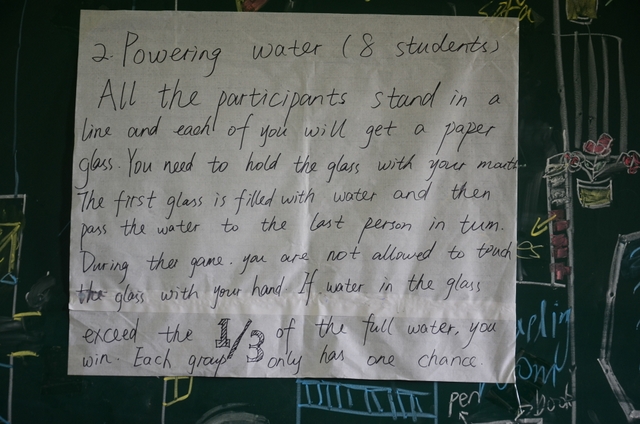 2. Powering water (8 students)
All the participants stand in a
line and each of you will get a paper
glass. You need to hold the glass with your mouth.
The first glass is filled with water and then
pass the water to the last person in turn.
During ther game. you are not allowed to touch
the glass with your hand. If water in the glass
exceed the 1/3 of the full water, you
win. Each group only has one chance.
pen
book